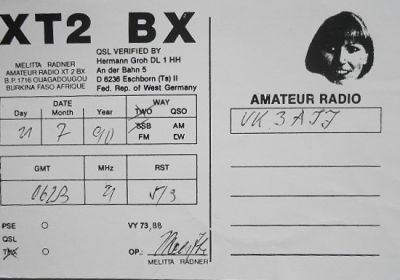 XT2 BX
MELITTA RADNER
AMATEUR RADIO XT 2 BX
B.P. 1716 OUAGADOUGOU
BURKINA FASO AFRIQUE
QSL VERIFIED BY
Hermann Groh DL 1 HH
An der Bahn 5
D 6236 Eschborn (Ts) II
Fed. Rep. of West Germany
DATE WAY
Day Month Year TWO QSO
21 7 90 SSB AM
FM CW
GMT MHz RST
0623 21 5/9
PSE O VY 73,88
QSL
TNX O OP.:
MELITTA RADNER
AMATEUR RADIO
VK 3 AJJ